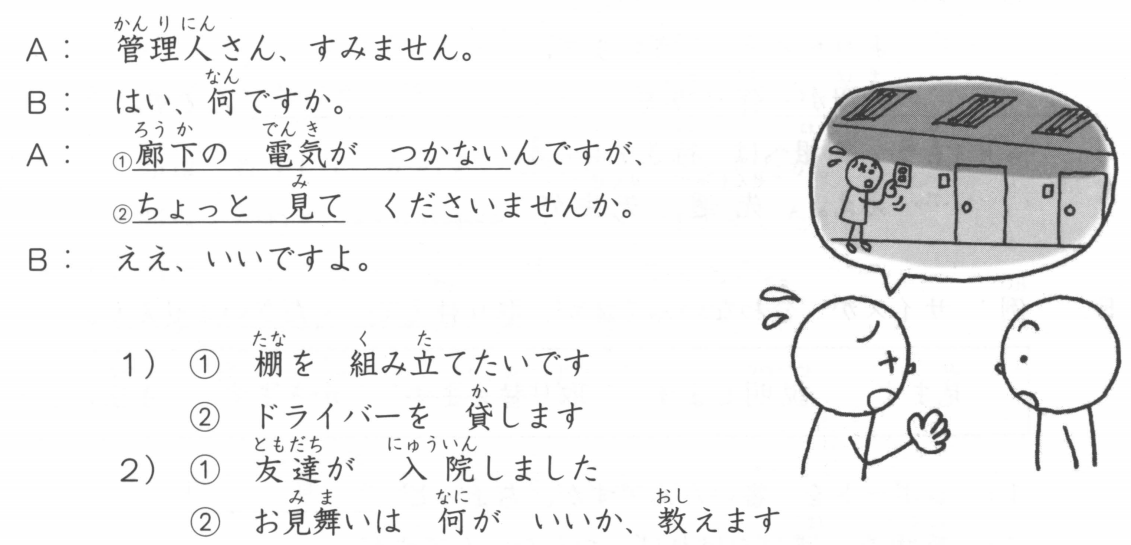 A： 管理人さん、すみません。
B： はい、何ですか。
A： ①廊下の 電気が つかないんですが、
②ちょっと 見て くださいませんか。
B： ええ、いいですよ。
1） ① 棚を 組み立てたいです
② ドライバーを 貸します
2） ① 友達が 入院しました
② お見舞いは 何が いいか、教えます